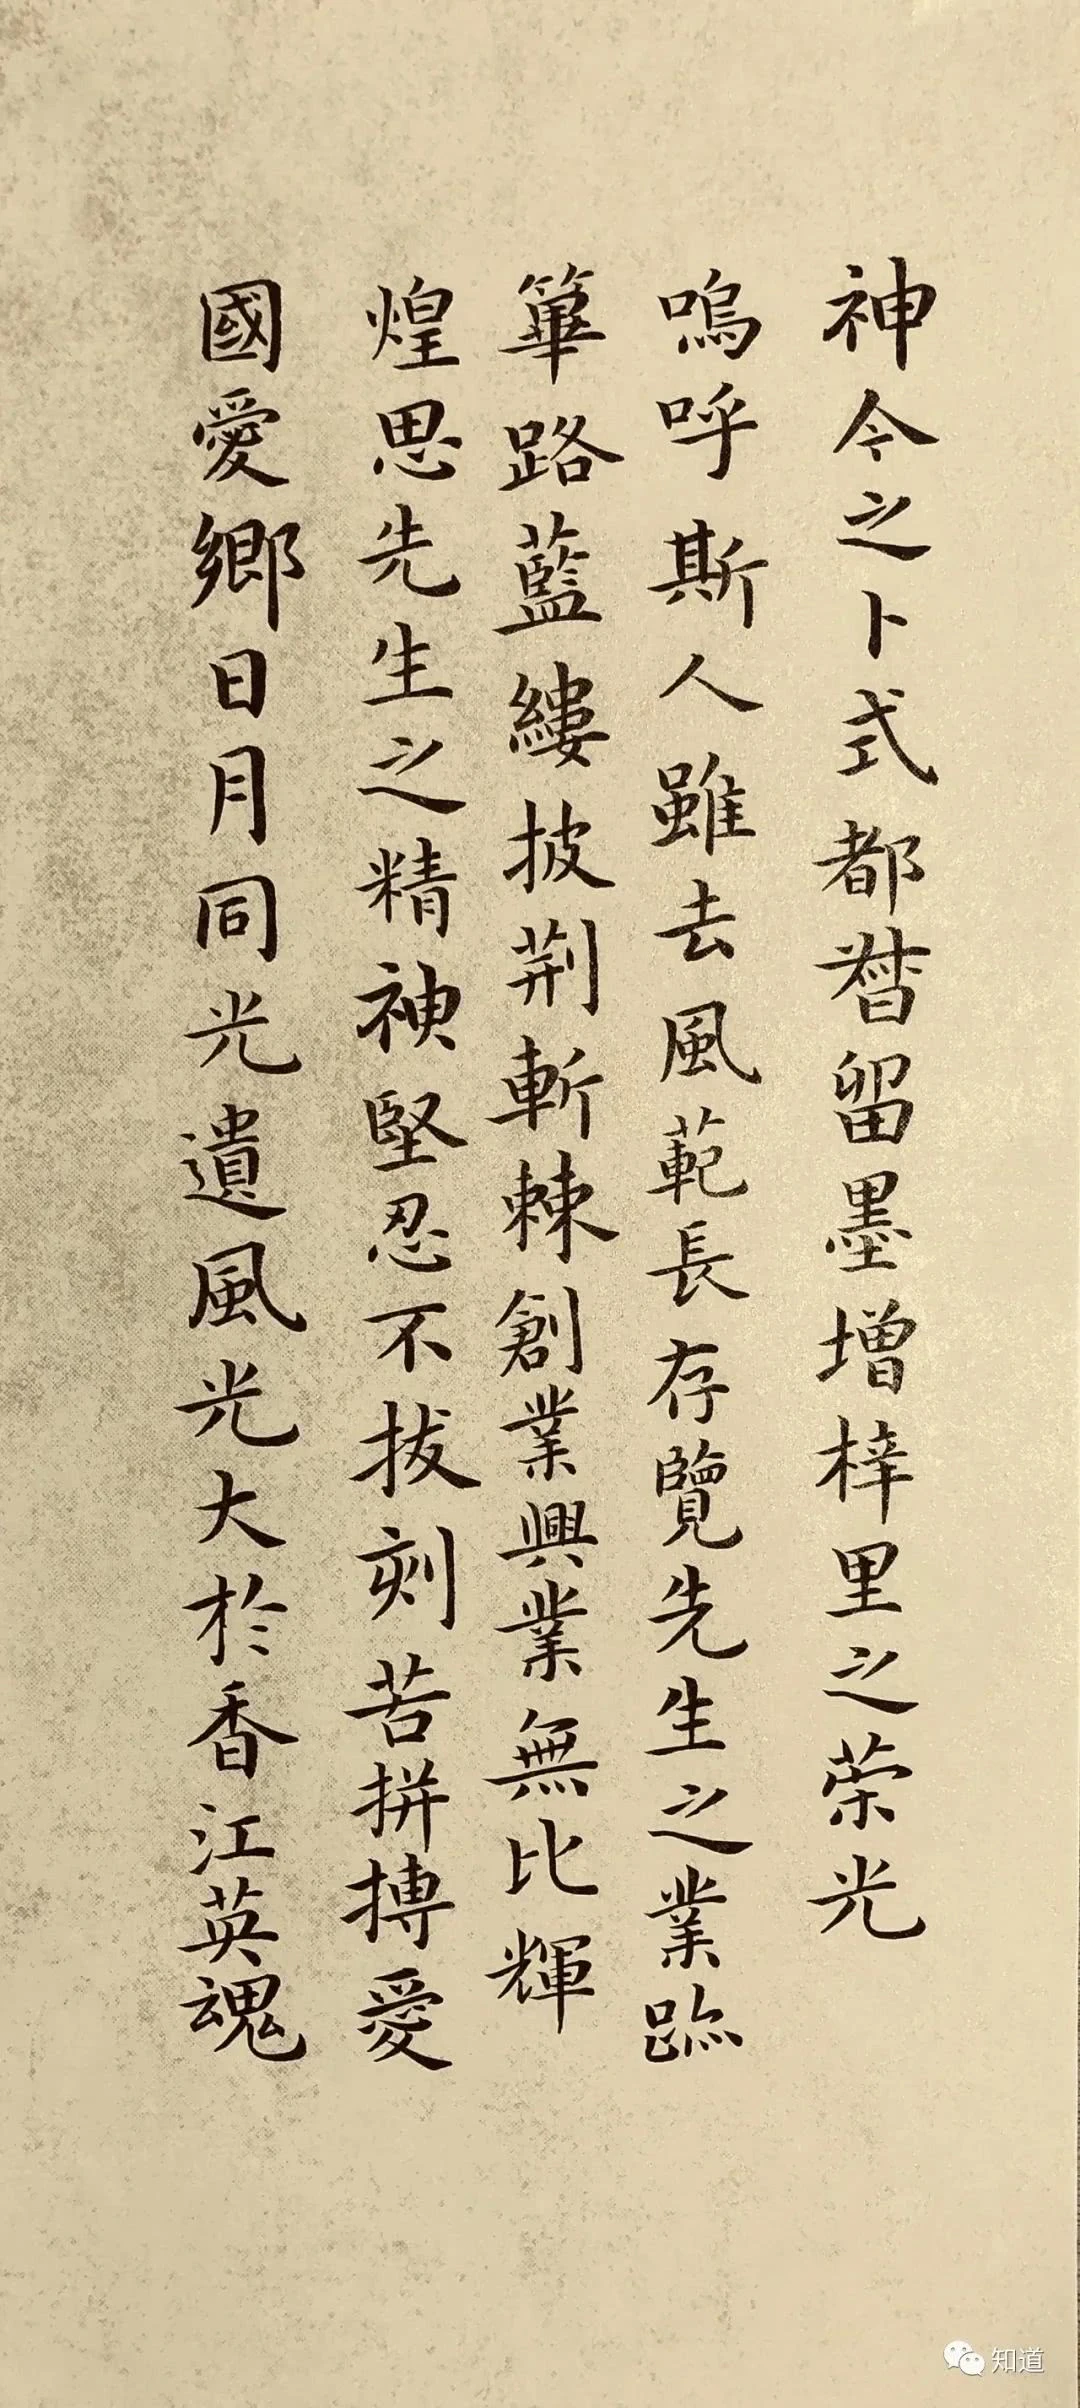 神今之卜式都督留墨增梓里之荣光
嗚呼斯人雖去風範長存覽先生之業跡
篳路藍縷披荆斬棘創業興業無比輝
煌思先生之精神堅忍不拔刻苦拼搏愛
國愛鄉日月同光遺風光大於香江英魂
知道